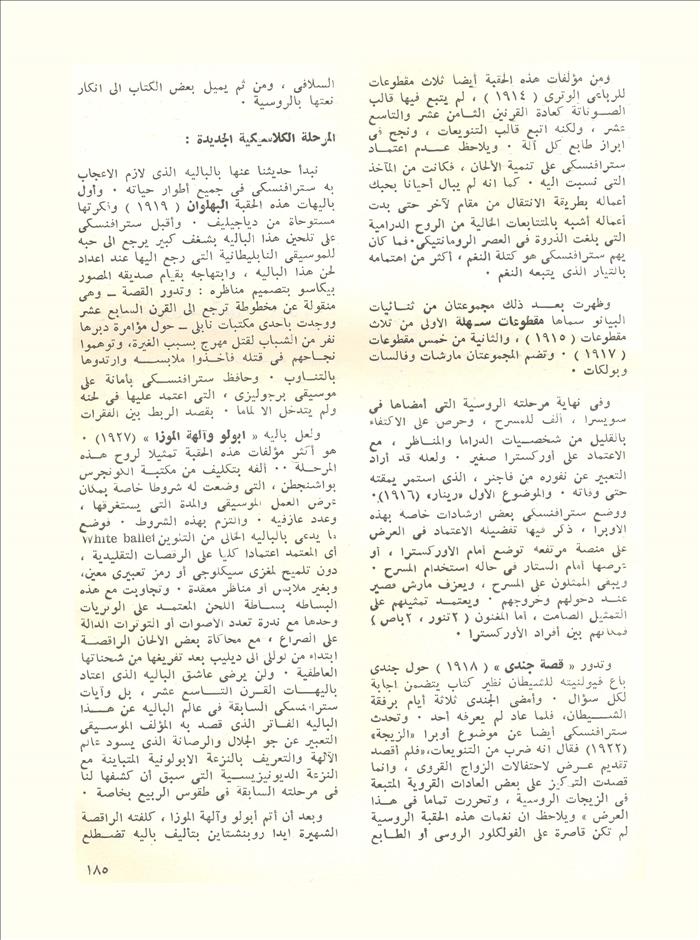 ومن مؤلفات هذه الحقبة أيضا ثلاث مقطوعات
للرباعى الوترى ( ١٩١٤ ) ، لم يتبع فيها قالب
الصوناتة كعادة القرنين الثامن عشر والتاسع
عشر ، ولكنه اتبع قالب التنويعات ، ونجح فى
ابراز طابع كل آلة ٠ ويلاحظ عدم اعتماد
سترافنسكى على تنمية الألحان ، فكانت من المآخذ
التى نسبت اليه ٠ كما انه لم يبال أحيانا بحبك
أعماله بطريقة الانتقال من مقام لآخر حتى بدت
أعماله أشبه بالمتتابعات الخالية من الروح الدرامية
التى بلغت الذروة فى العصر الرومانتيكى٠ فما كان
يهم سترافنسكى هو كتلة النغم ، أكثر من اهتمامه
بالتيار الذى يتبعه النغم ٠
وظهرت بعد ذلك مجموعتان من ثنائيات
البيانو سماها مقطوعات سهلة الأولى من ثلاث
مقطوعات ( ١٩١٥ ) ، والثانية من خمس مقطوعات
( ١٩١٧ ) ٠ وتضم المجموعتان مارشات وفالسات
وبولكات ٠
وفى نهاية مرحلته الروسية التى أمضاها فى
سويسرا ، ألف للمسرح ، وحرص على الاكتفاء
بالقليل من شخصيات الدراما والمناظر ، مع
الاعتماد على أوركسترا صغير ٠ ولعله قد أراد
التعبير عن نفوره من فاجنر ، الذى استمر يمقته
حتى وفاته ٠ والموضوع الأول «رينار» (١٩١٦)٠
ووضع سترافنسكى بعض ارشادات خاصه بهذه
الاوبرا ، ذكر فيها تفضيله الاعتماد فى العرض
على منصة مرتفعه توضع أمام الأوركسترا ، أو
عرضها أمام الستار فى حاله استخدام المسرح ٠
ويبقى الممثلون على المسرح ، ويعزف مارش قصير
عند دخولهم وخروجهم ٠ ويعتمد تمثيلهم على
التمثيل الصامت ، أما المغنون ( ٢تنور ، ٢باص )
فمكانهم بين أفراد الأوركسترا ٠
وتدور « قصة جندى » ( ١٩١٨ ) حول جندى
باع فيولنيته للشيطان نظير كتاب يتضمن اجابة
لكل سؤال ٠ وأمضى الجندى ثلاثة أيام برفقة
الشيطان، فلما عاد لم يعرفه أحد ٠ وتحدث
سترافنسكى أيضا عن موضوع أوبرا «الزيجة»
(١٩٢٢) فقال انه ضرب من التنويعات،«فلم أقصد
تقديم عرض لاحتفالات الزواج القروى ، وانما
قصدت التركيز على بعض العادات القروية المتبعة
فى الزيجات الروسية ، وتحررت تماما فى هذا
العرض » ويلاحظ ان نغمات هذه الحقبة الروسية
لم تكن قاصرة على الفولكلور الروسى أو الطابع
السلافى ، ومن ثم يميل بعض الكتاب الى انكار
نعتها بالروسية ٠
المرحلة الكلاسيكية الجديدة :
نبدأ حديثنا عنها بالباليه الذى لازم الاعجاب
به سترافنسكى فى جميع أطوار حياته ٠ وأول
باليهات هذه الحقبة البهلوان ( ١٩١٩ ) وفكرتها
مستوحاة من دياجيليف ٠ وأقبل سترافنسكى
على تلحين هذا الباليه بشغف كبير يرجع الى حبه
للموسيقى النابليطانية التى رجع اليها عند اعداد
لحن هذا الباليه ، وابتهاجه بقيام صديقه المصور
بيكاسو بتصميم مناظره : وتدور القصة – وهى
منقولة عن مخطوطة ترجع الى القرن السابع عشر
ووجدت باحدى مكتبات نابلى – حول مؤامرة دبرها
نفر من الشباب لقتل مهرج بسبب الغيرة، وتوهموا
نجاحهم فى قتله فأخذوا ملابسه وارتدوها
بالتناوب ٠ وحافظ سترافنسكى بأمانة على
موسيقى برجوليزى ، التى اعتمد عليها فى لحنه
ولم يتدخل الا لماما ٠ بقصد الربط بين الفقرات
ولعل باليه « ابولو وآلهة الموزا » (١٩٢٧) ٠
هو أكثر مؤلفات هذه الحقبة تمثيلا لروح هذه
المرحلة ٠٠ ألفه بتكليف من مكتبة الكونجرس
بواشنجطن ، التى وضعت له شروطا خاصة بمكان
عرض العمل الموسيقى والمدة التى يستغرقها ،
وعدد عازفيه ٠ والتزم بهذه الشروط ٠ فوضع
ما يدعى بالباليه الخالى من التنوين White ballet
أى المعتمد اعتمادا كليا على الرقصات التقليدية ،
دون تلميح لمغزى سيكلوجى أو رمز تعبيرى معين،
وبغير ملابس أو مناظر معقدة ٠ وتجاوبت مع هذه
البساطه بساطة اللحن المعتمد على الوتريات
وحدها مع ندرة تعدد الاصوات أو التوترات الدالة
على الصراع ، مع محاكاة بعض الألحان الراقصة
ابتداء من لوللى الى ديليب بعد تفريغها من شحناتها
العاطفية ٠ ولن يرضى عاشق الباليه الذى اعتاد
باليهات القرن التاسع عشر ، بل وآيات
سترافنسكى السابقة فى عالم الباليه عن هذا
الباليه الفاتر الذى قصد به المؤلف الموسيقى
التعبير عن جو الجلال والرصانة الذى يسود عالم
الآلهة والتعريف بالنزعة الابولونية المتباينة مع
النزعة الديونيزسية التى سبق أن كشفها لنا
فى مرحلته السابقة فى طقوس الربيع بخاصة ٠
وبعد أن أتم أبولو وآلهة الموزا ، كلفته الراقصة
الشهيرة ايدا روبنشتاين بتأليف باليه تضطلع
١٨٥